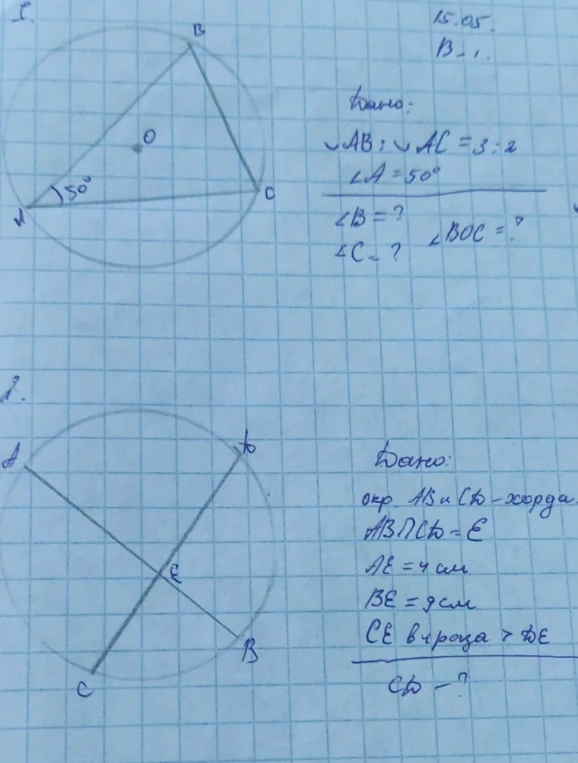 1.
15.05.
В-1.
B
O
50°
A
C
Дано:
◡AB : ◡AC = 3:2
∠A = 50°
∠B = ?
∠C = ?
∠BOC = ?
2.
A
D
E
B
C
Дано:
окр. AB и CD - хорда.
AB ∩ CD = E
AE = 4 см
BE = 9 см
CE в 4 раза > DE
CD - ?